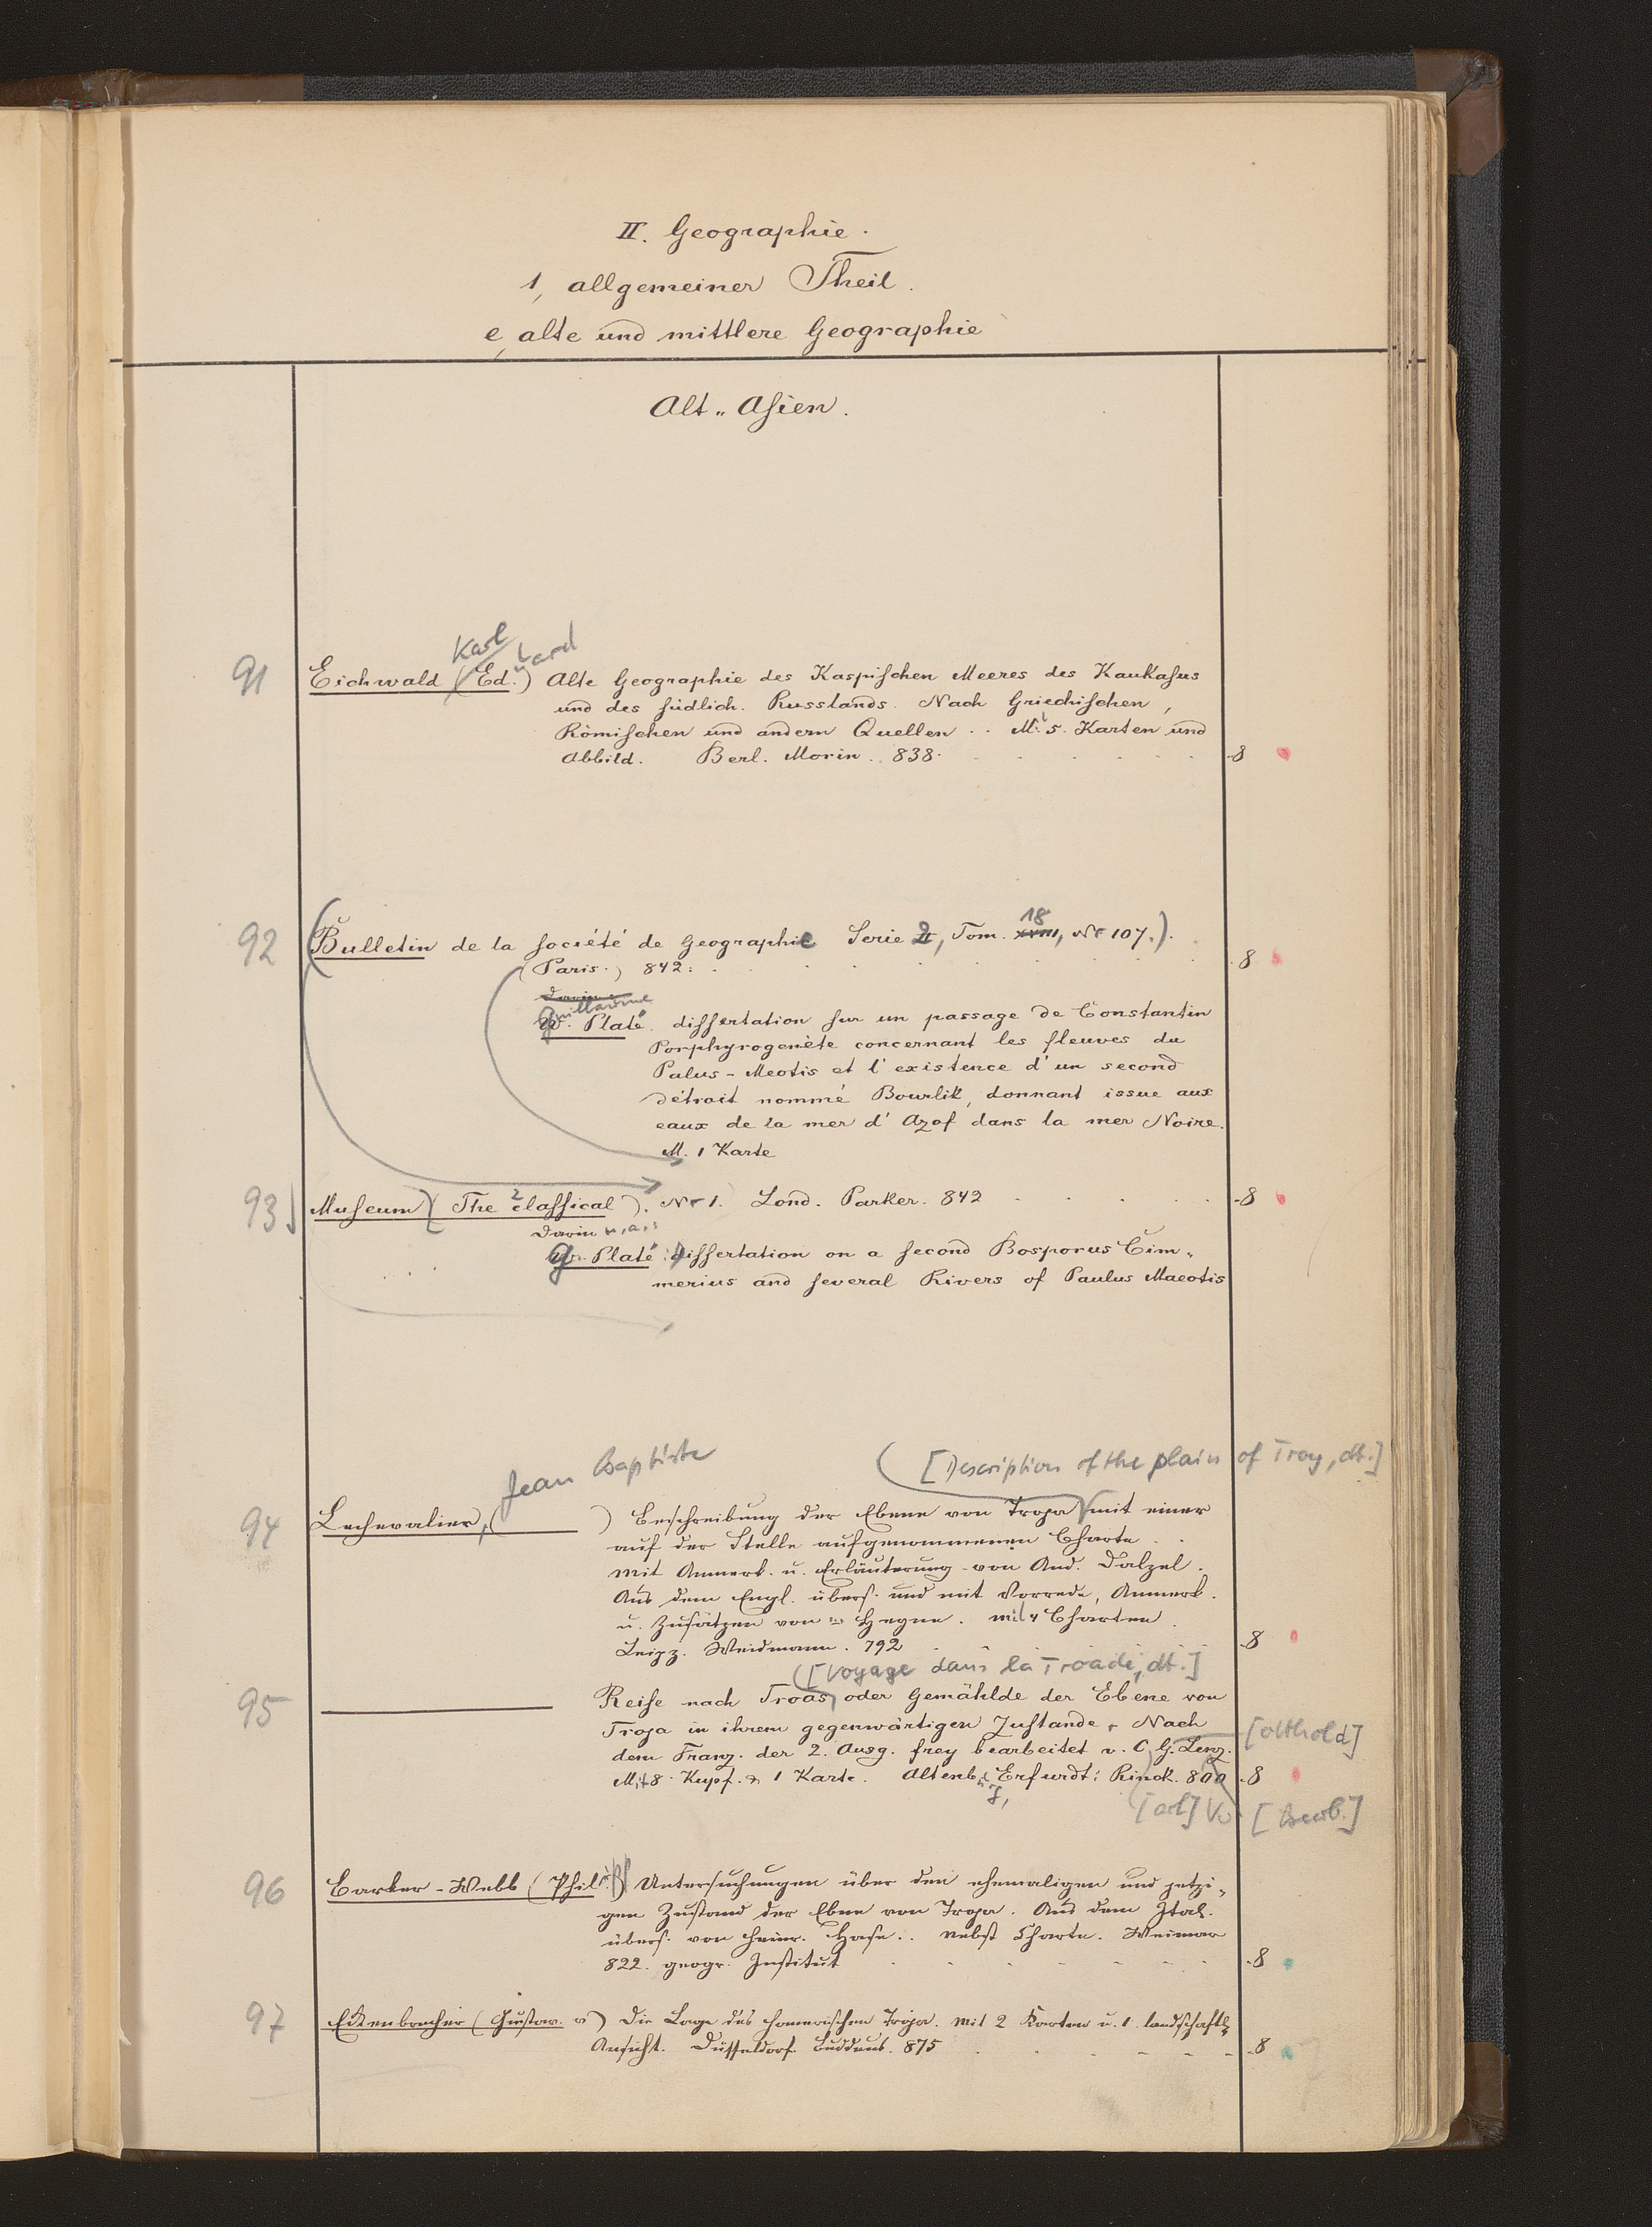 II. Geographie.
1, allgemeiner Theil.
e, alte und mittlere Geographie
Alt-Asien.
Karl
uard
91 Eichwald (Ed.) Alte Geographie des Kaspischen Meeres des Kaukasus
und des südlich. Russlands. Nach Griechischen,
Römischen und andern Quellen .. Mit 5. Karten und
Abbild. Berl. Morin. 838. 8
18
92 (Bulletin de la société de Geographie Serie 2, Tom. XVIII, Nr 107.).
(Paris.) 842. 8
Darin
Guillaume
W. Platé. dissertation sur un passage de Constantin
Porphyrogenète concernant les fleuves du
Palus-Meotis et l'existence d'un second
détroit nommé Bourlik, donnant issue aux
eaux de la mer d'Azof dans la mer Noire.
M. 1 Karte
93 Museum (The classical). Nr 1. Lond. Parker. 842 8
Darin u. a.:
G. Platé: dissertation on a second Bosporus Cim-
merius and several Rivers of Paulus Maeotis
Jean Baptiste
[Description of the plain of Troy, dt.]
94 Lechevalier, ( ) Beschreibung der Ebene von Troja mit einer
auf der Stelle aufgenommenen Charte.
Mit Anmerk. u. Erläuterung von And. Dalzel.
Aus dem Engl. übers. und mit Vorrede, Anmerk.
u. Zusätzen von Heyne. Mit 4 Charten.
Leipz. Weidmann. 792 8
[Voyage dans la Troade, dt.]
95 Reise nach Troas oder Gemählde der Ebene von
Troja in ihrem gegenwärtigen Zustande. Nach
[otthold]
dem Franz. der 2. Ausg. frey bearbeitet v. C. G. Lenz.
Mit 8. Kupf. & 1 Karte. Altenb. Erfurdt: Rinck. 800 8
[arl] [bearb.]
96 Barker-Webb (Phil.) Untersuchungen über den ehemaligen und jetzi-
gen Zustand der Ebene von Troja. Aus dem Ital.
übers. von Heinr. Hase.. Nebst Charte. Weimar
822. geogr. Institut 8
97 Eckenbrecher (Gustav. v) Die Lage des homerischen Troja. Mit 2 Karten u. 1. landschaftl.
Ansicht. Düsseldorf. Buddeus. 875 8